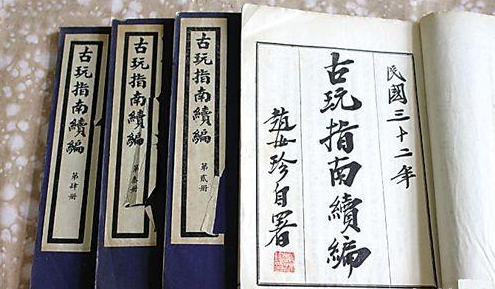 古玩指南續編
第肆册
古玩指南續編
第叁册
古玩指南續編
第貳册
民國三十二年
古玩指南續編
趙汝珍自署